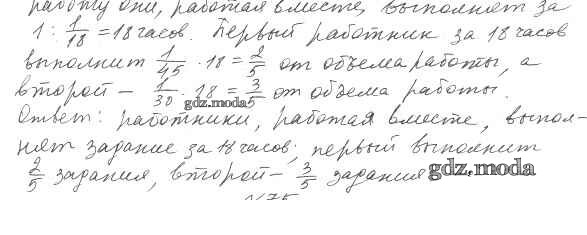 работу они, работая вместе, выполняет за
1 : 1/18 = 18 часов. Первый работник за 18 часов
выполнит 1/45 · 18 = 2/5 от объема работы, а
второй – 1/30 · 18 = 3/5 от объема работы.
gdz.moda
Ответ: работники, работая вместе, выпол-
нят задание за 18 часов; первый выполнит
2/5 задания, второй – 3/5 задания
gdz.moda